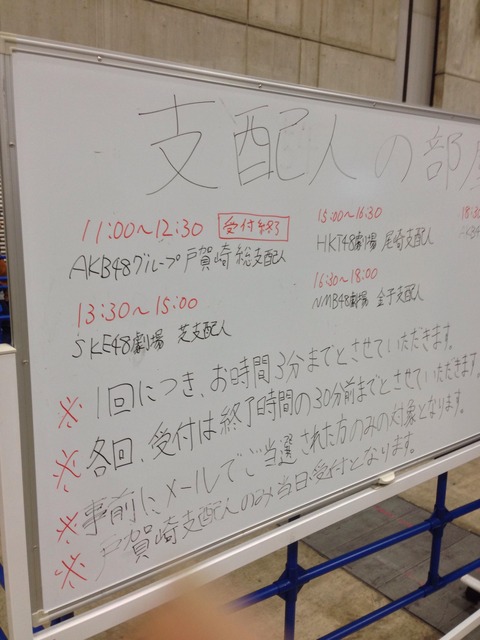 支配人の部屋
11:00～12:30 受付終了
AKB48グループ 戸賀崎総支配人
13:30～15:00
SKE48劇場 芝支配人
15:00～16:30
HKT48劇場 尾崎支配人
16:30～18:00
NMB48劇場 金子支配人
18:30
※ 1回につき、お時間3分までとさせていただきます。
※ 各回、受付は終了時間の30分前までとさせていただきます。
※ 事前にメールでご当選された方のみの対象となります。
※ 戸賀崎支配人のみ当日受付となります。